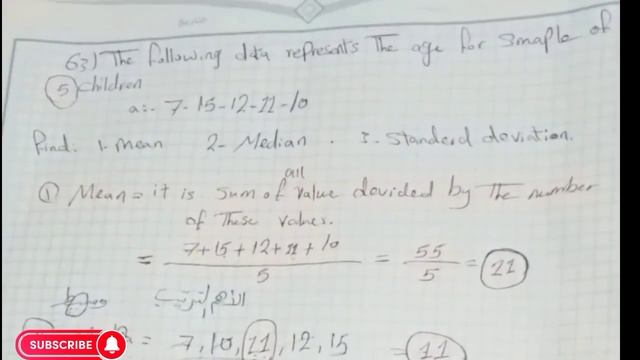 63) The following data represents The age for Smaple of
5 children
a:- 7-15-12-11-10
Find: 1- mean 2- Median . 3- Standerd deviation.
① Mean = it is Sum of all value devided by The number
of These values.
= 7+15+12+11+10 / 5 = 55 / 5 = 21
الأهم الترتيب
= 7, 10, 11, 12, 15 = 11
SUBSCRIBE